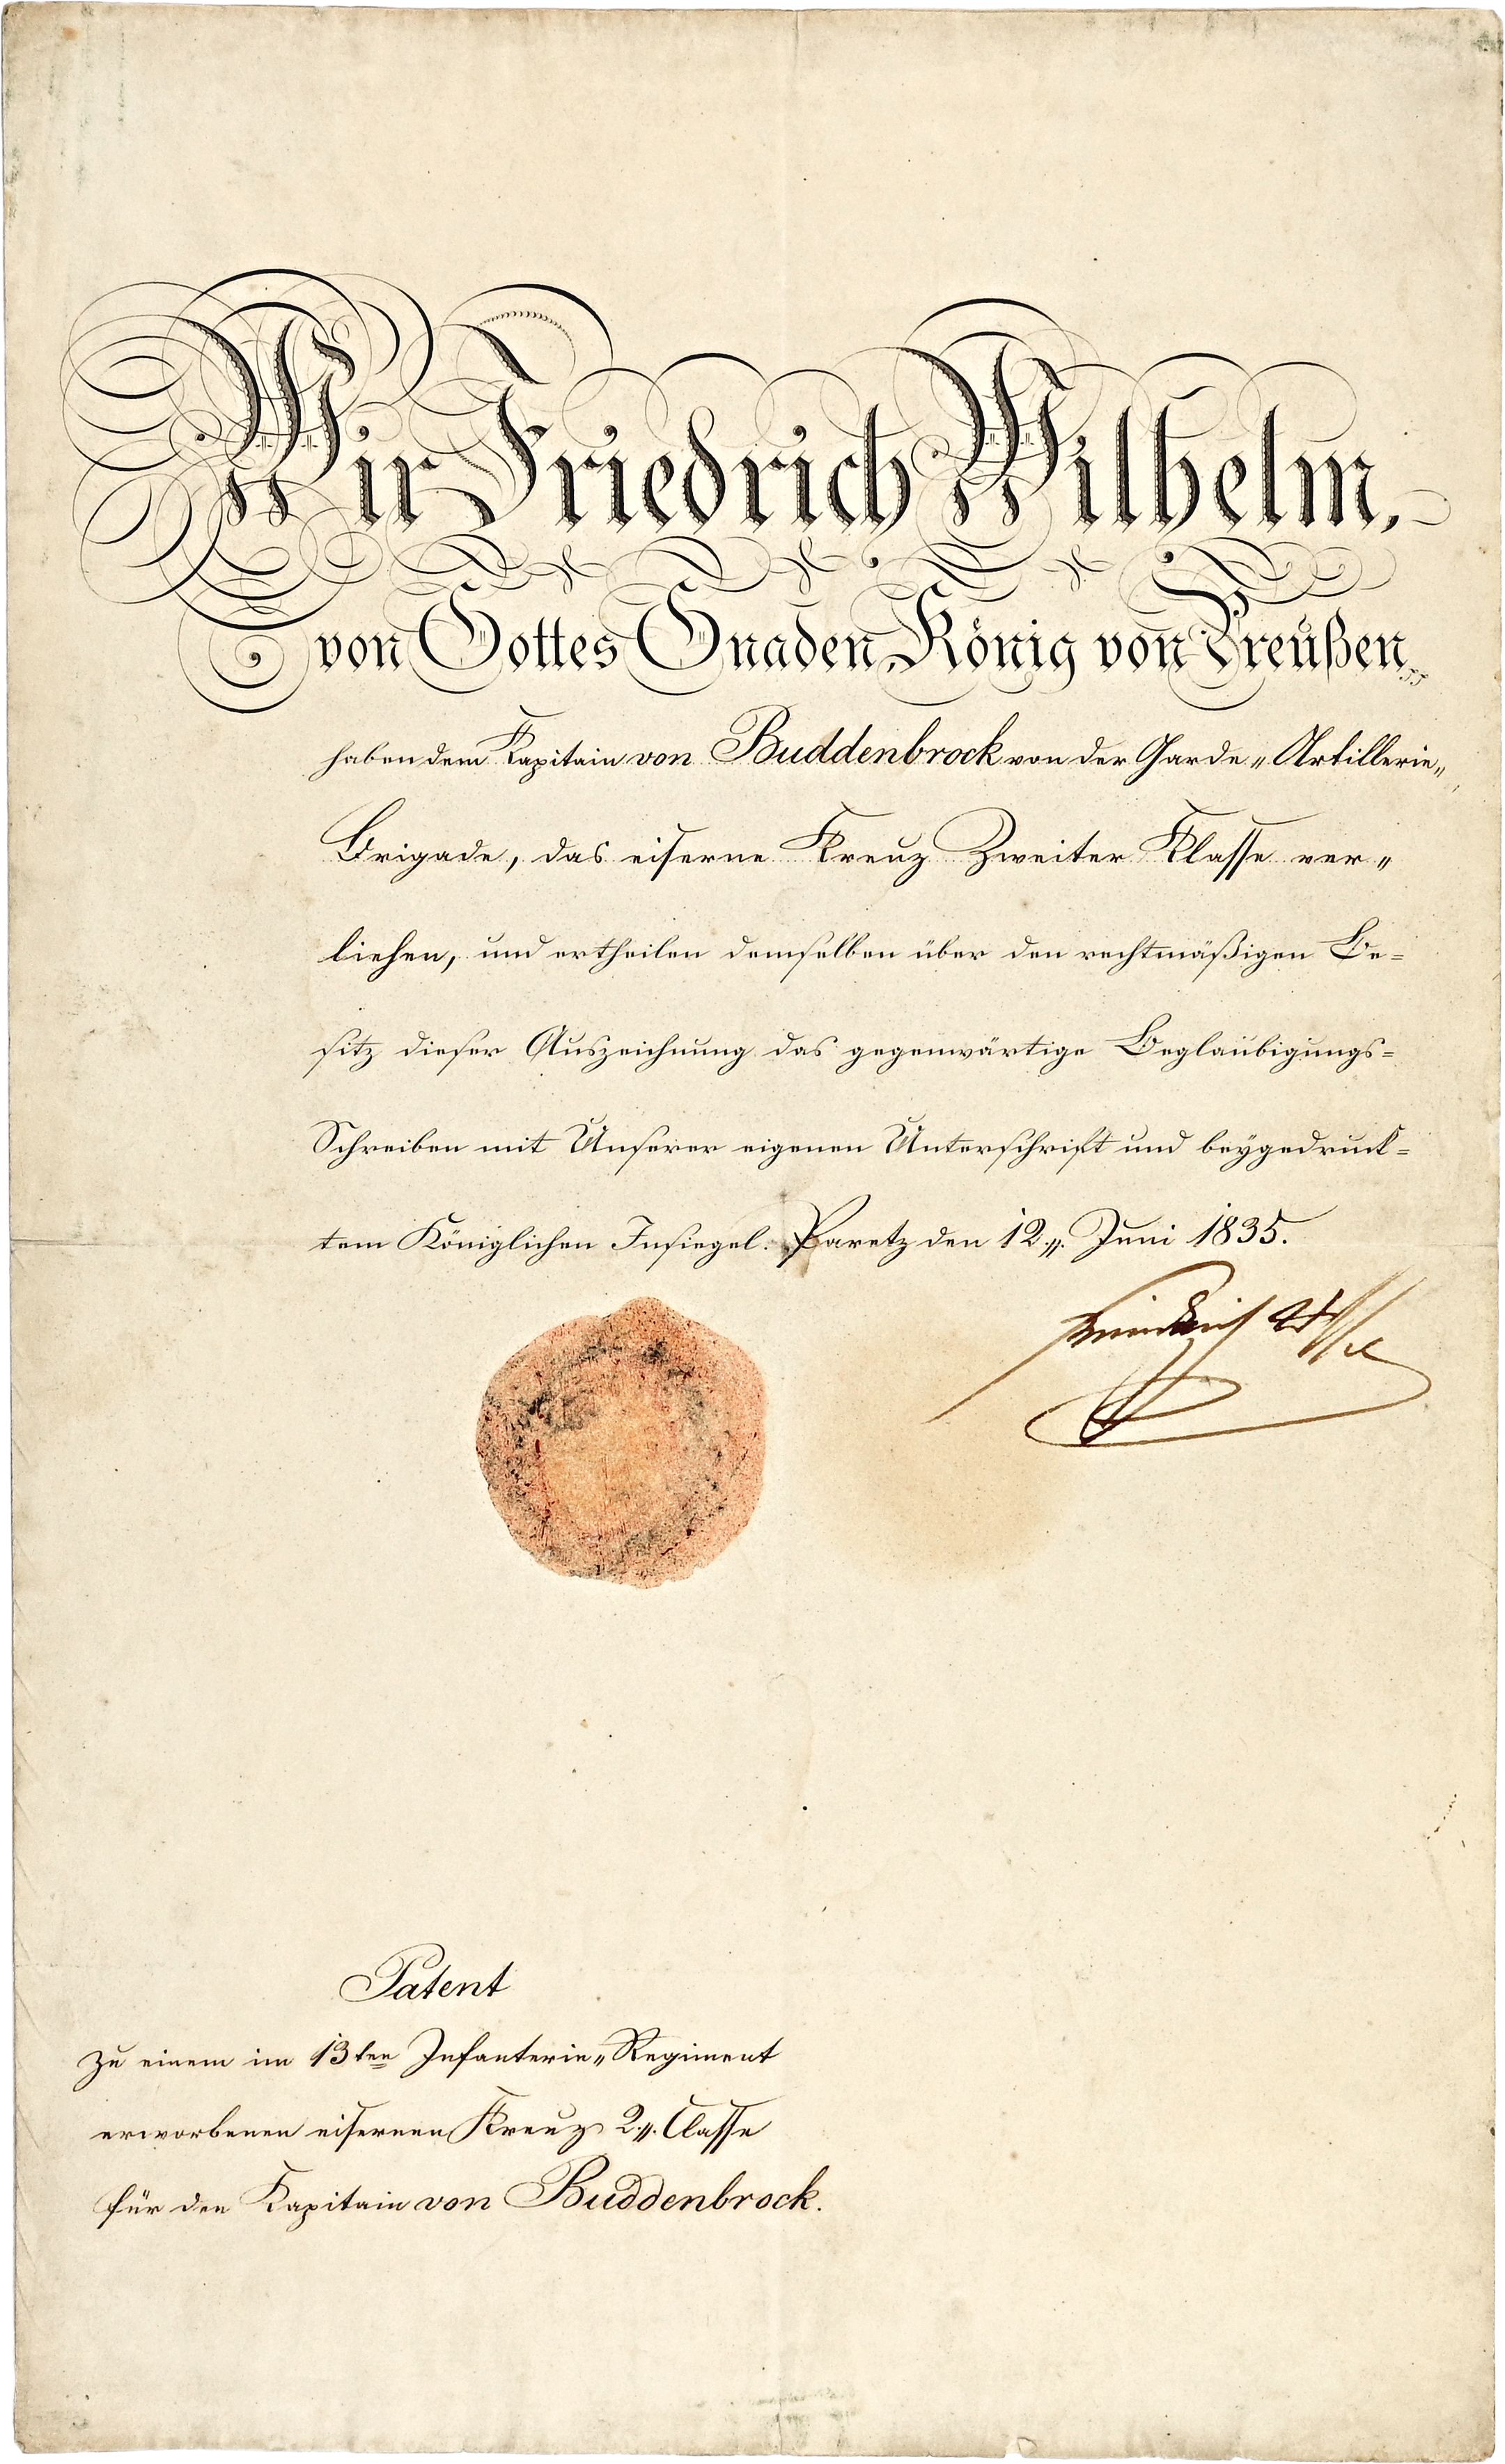 Wir Friedrich Wilhelm,
von Gottes Gnaden König von Preußen
haben dem Kapitain von Buddenbrock von der Garde„Artillerie„
Brigade, das eiserne Kreuz Zweiter Klasse ver„
liehen, und ertheilen demselben über den rechtmäßigen Be=
sitz dieser Auszeichnung das gegenwärtige Beglaubigungs=
Schreiben mit Unserer eigenen Unterschrift und beygedruck=
tem Königlichen Insiegel. Paretz den 12„. Juni 1835.
Friedrich Wilhelm
Patent
zu einem im 13ten Infanterie„Regiment
erworbenen eisernen Kreuz 2„. Classe
für den Kapitain von Buddenbrock.